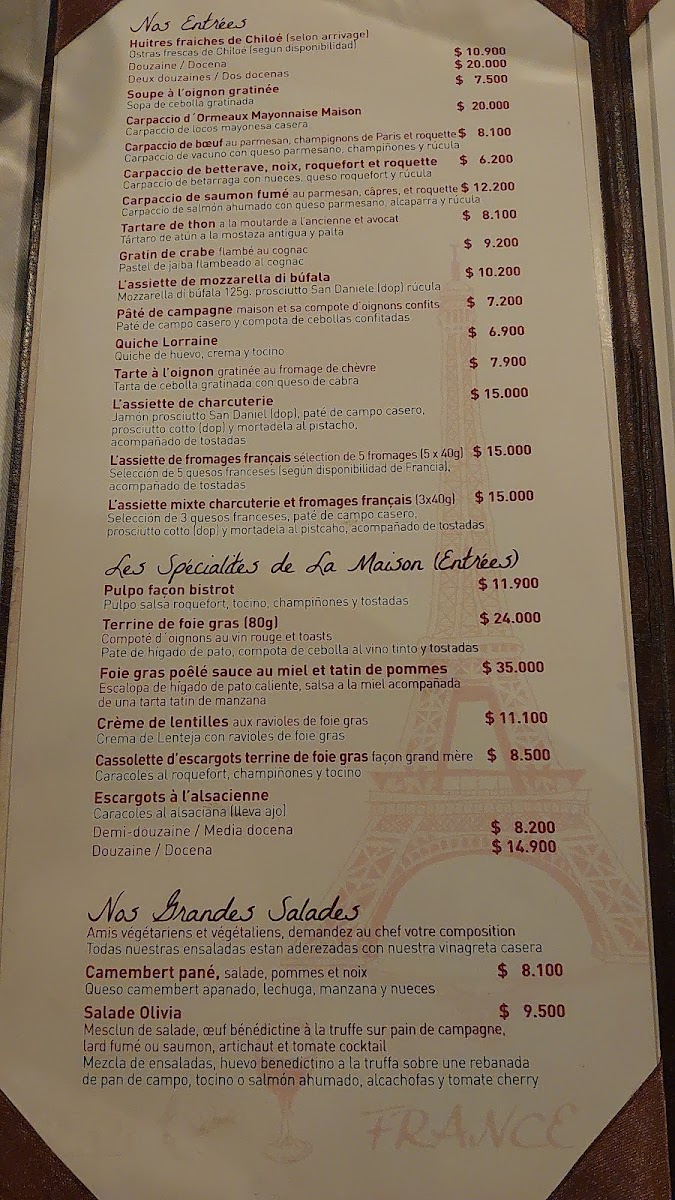 Nos Entrées
Huitres fraiches de Chiloé (selon arrivage)
Ostras frescas de Chiloé (segun disponibilidad)
Douzaine / Docena $ 10.900
Deux douzaines / Dos docenas $ 20.000
Soupe à l'oignon gratinée $ 7.500
Sopa de cebolla gratinada
Carpaccio d´Ormeaux Mayonnaise Maison $ 20.000
Carpaccio de locos mayonesa casera
Carpaccio de bœuf au parmesan, champignons de Paris et roquette $ 8.100
Carpaccio de vacuno con queso parmesano, champiñones y rúcula
Carpaccio de betterave, noix, roquefort et roquette $ 6.200
Carpaccio de betarraga con nueces, queso roquefort y rúcula
Carpaccio de saumon fumé au parmesan, câpres, et roquette $ 12.200
Carpaccio de salmón ahumado con queso parmesano, alcaparra y rúcula
Tartare de thon a la moutarde a l'ancienne et avocat $ 8.100
Tártaro de atún a la mostaza antigua y palta
Gratin de crabe flambé au cognac $ 9.200
Pastel de jaiba flambeado al cognac
L'assiette de mozzarella di búfala $ 10.200
Mozzarella di búfala 125g. prosciutto San Daniele (dop) rúcula
Pâté de campagne maison et sa compote d'oignons confits $ 7.200
Paté de campo casero y compota de cebollas confitadas
Quiche Lorraine $ 6.900
Quiche de huevo, crema y tocino
Tarte à l'oignon gratinée au fromage de chèvre $ 7.900
Tarta de cebolla gratinada con queso de cabra
L'assiette de charcuterie $ 15.000
Jamón prosciutto San Daniel (dop), paté de campo casero,
prosciutto cotto (dop) y mortadela al pistacho,
acompañado de tostadas
L'assiette de fromages français sélection de 5 fromages (5 x 40g) $ 15.000
Selección de 5 quesos franceses (según disponibilidad de Francia),
acompañado de tostadas
L'assiette mixte charcuterie et fromages français (3x40g) $ 15.000
Selección de 3 quesos franceses, paté de campo casero,
prosciutto cotto (dop) y mortadela al pistcaho, acompañado de tostadas
Les Spécialités de La Maison (Entrées)
Pulpo façon bistrot $ 11.900
Pulpo salsa roquefort, tocino, champiñones y tostadas
Terrine de foie gras (80g) $ 24.000
Compoté d´oignons au vin rouge et toasts
Pate de hígado de pato, compota de cebolla al vino tinto y tostadas
Foie gras poêlé sauce au miel et tatin de pommes $ 35.000
Escalopa de hígado de pato caliente, salsa a la miel acompañada
de una tarta tatin de manzana
Crème de lentilles aux ravioles de foie gras $ 11.100
Crema de Lenteja con ravioles de foie gras
Cassolette d'escargots terrine de foie gras façon grand mère $ 8.500
Caracoles al roquefort, champiñones y tocino
Escargots à l'alsacienne
Caracoles al alsaciana (lleva ajo)
Demi-douzaine / Media docena $ 8.200
Douzaine / Docena $ 14.900
Nos Grandes Salades
Amis végétariens et végétaliens, demandez au chef votre composition
Todas nuestras ensaladas estan aderezadas con nuestra vinagreta casera
Camembert pané, salade, pommes et noix $ 8.100
Queso camembert apanado, lechuga, manzana y nueces
Salade Olivia $ 9.500
Mesclun de salade, œuf bénédictine à la truffe sur pain de campagne,
lard fumé ou saumon, artichaut et tomate cocktail
Mezcla de ensaladas, huevo benedictino a la truffa sobre une rebanada
de pan de campo, tocino o salmón ahumado, alcachofas y tomate cherry
FRANCE